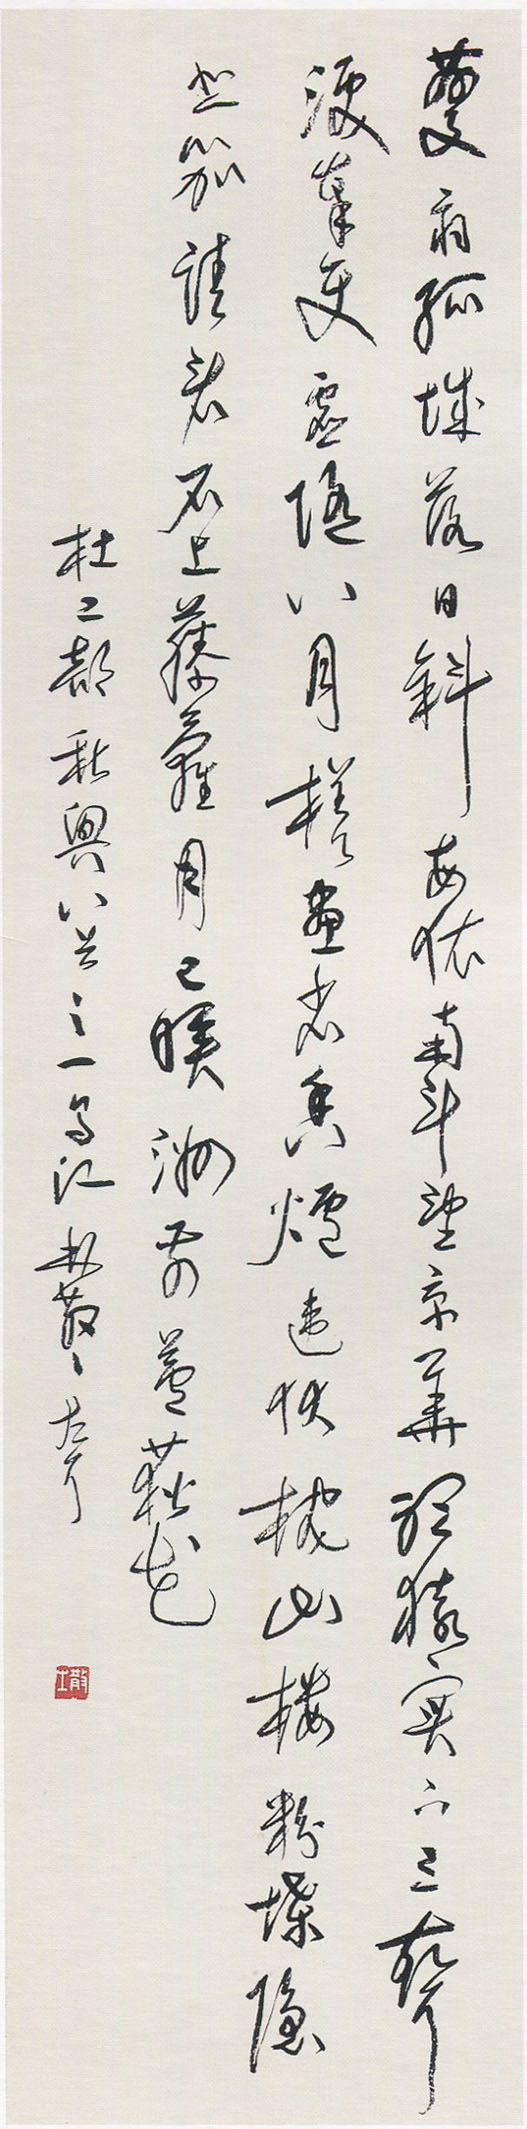 夔府孤城落日斜每依南斗望京華聽猿實下三聲
淚奉使虛隨八月槎畫省香爐違伏枕山樓粉堞隱
悲笳請看石上藤蘿月已映洲前蘆荻花
杜工部秋興八首之一烏江林散之左耳
散耳